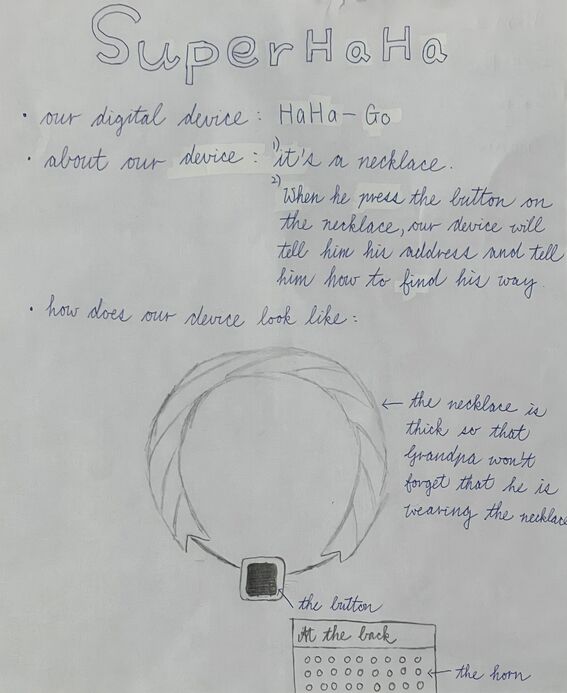 SuperHaHa
• our digital device: HaHa-Go
• about our device: 1) it's a necklace.
2) When he press the button on
the necklace, our device will
tell him his address and tell
him how to find his way.
• how does our device look like:
← the necklace is
thick so that
Grandpa won't
forget that he is
wearing the necklace
the button
At the back
← the horn